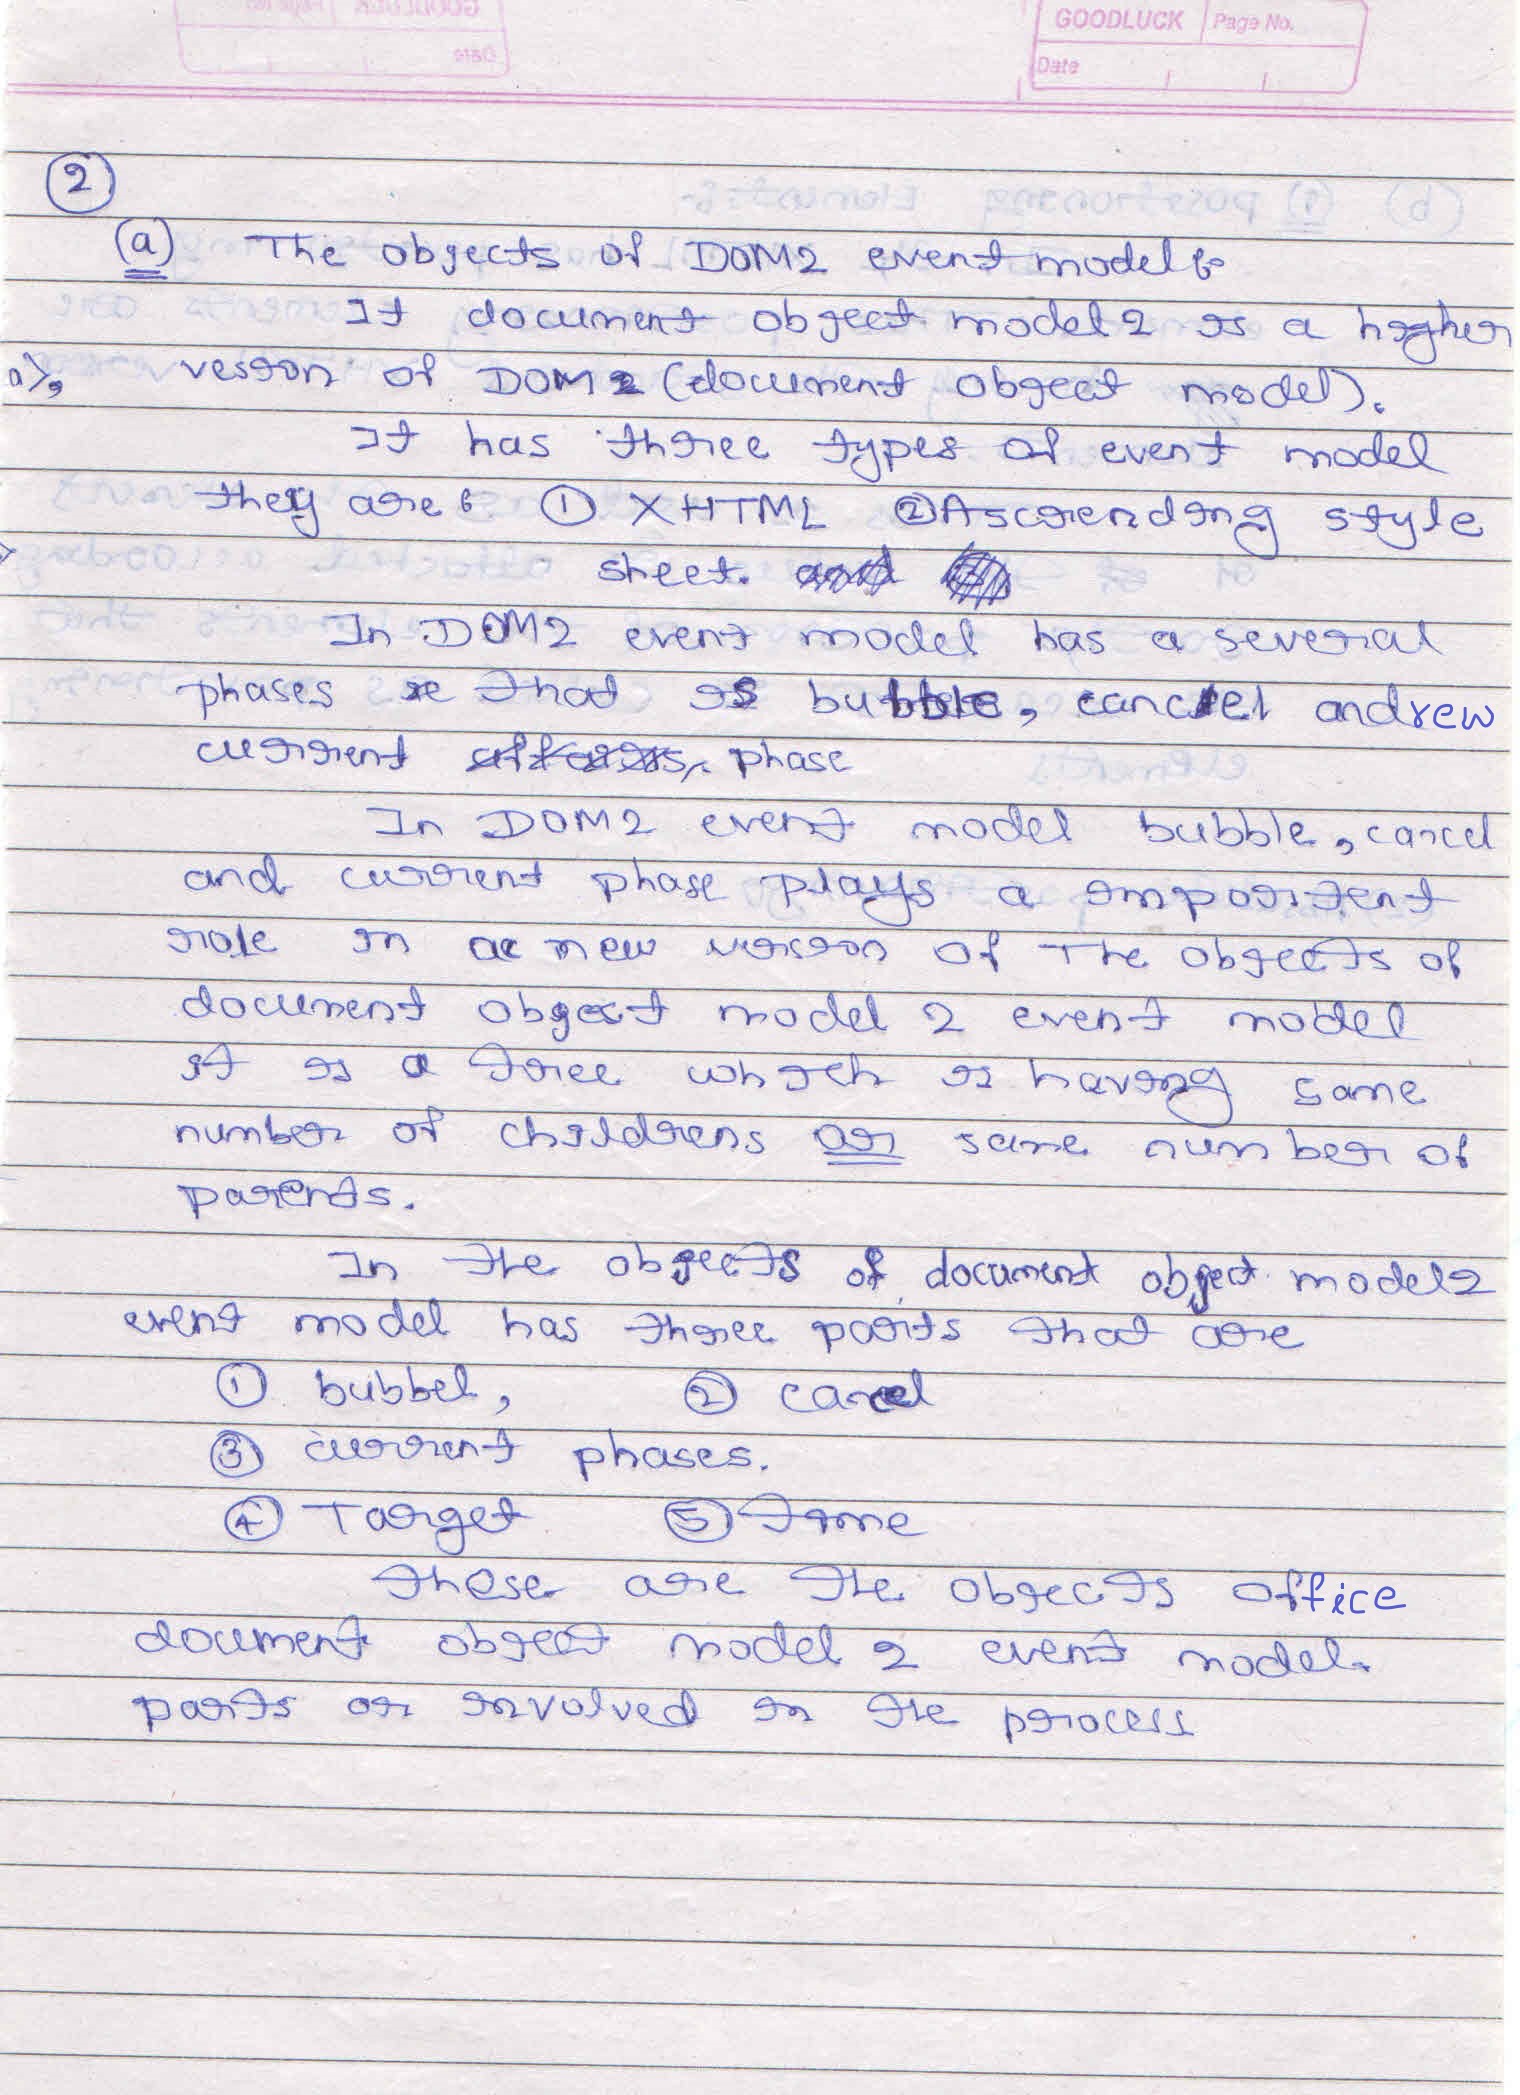 GOODLUCK Page No.
Date
2
(a) The objects of DOM2 event model :-
It document object model 2 is a higher
a), vesion of DOM2 (document object model).
It has three types of event model
they are : ① XHTML ② Ascrending style
sheet. and
In DOM2 event model has a several
phases that is bubble, cancel andrew
current phase
In DOM2 event model bubble, cancel
and current phase plays a importent
role in a new version of The objects of
document object model 2 event model
it is a tree which is having same
number of childrens or same number of
parents.
In the objects of document object model 2
event model has three parts that are
① bubbel, ② cancel
③ current phases.
④ Target ⑤ time
these are the objects office
document object model 2 event model.
parts or involved in the process